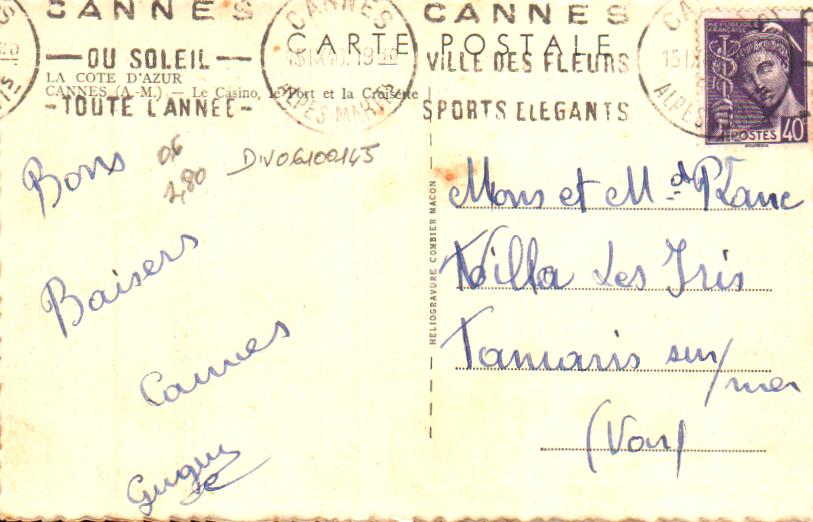 CANNES CANNES CANNES
CARTE POSTALE
DU SOLEIL VILLE DES FLEURS
LA COTE D'AZUR
CANNES (A.-M.) — Le Casino, le Port et la Croisette
TOUTE L'ANNEE SPORTS ELEGANTS
ALPES-MARIT
REPUBLIQUE FRANÇAISE
POSTES 40c
06
2,80
DIV06100145
Bons
Baisers
Cannes
HELIOGRAVURE COMBIER MACON
Mons et Md
Villa Les Iris
Tamaris sur/mer
(Var)